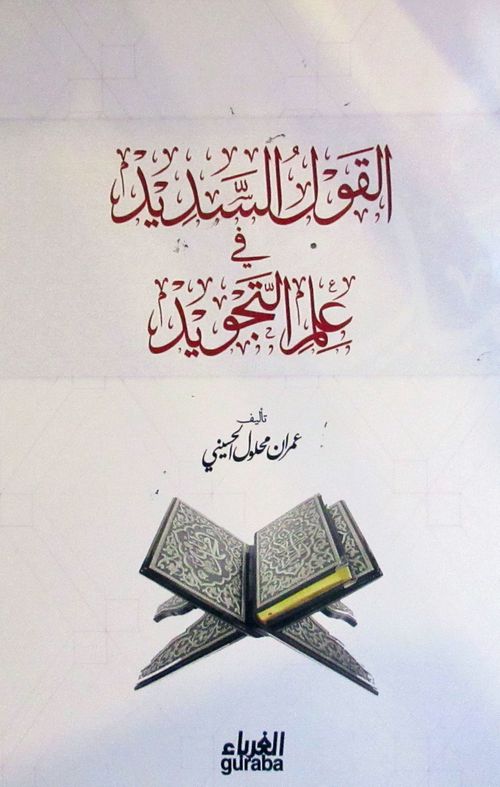 القَوْلُ السَّدِيْد
في
عِلِمِ التَّجْوِيْد
تأليف
عمران محلول الحسيني
الغرباء
guraba